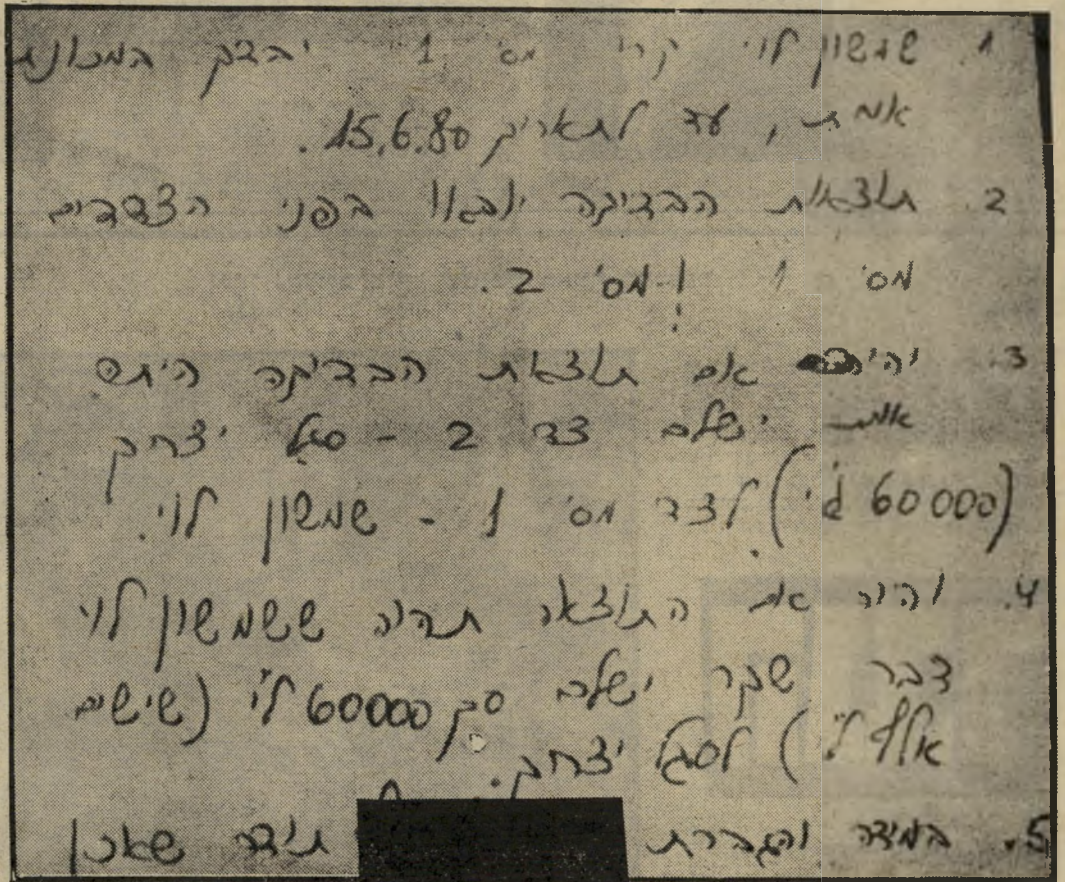 1. שמשון לוי קרי מס' 1 יבדק במכונת
אמת, עד לתאריך 15.6.80.
2. תוצאות הבדיקה יובאו בפני הצדדים
מס' 1 ו-מס' 2.
3. והיה אם תוצאות הבדיקה היתה
אמת ישלם צד 2 - סגל יצחק
(60000 ל"י) לצד מס' 1 - שמשון לוי.
4. והיה אם התוצאה תהיה ששמשון לוי
דבר שקר ישלם סך 60000 ל"י (שישים
אלף ל"י) לסגל יצחק.
5. במידה והגברת תודה שאכן